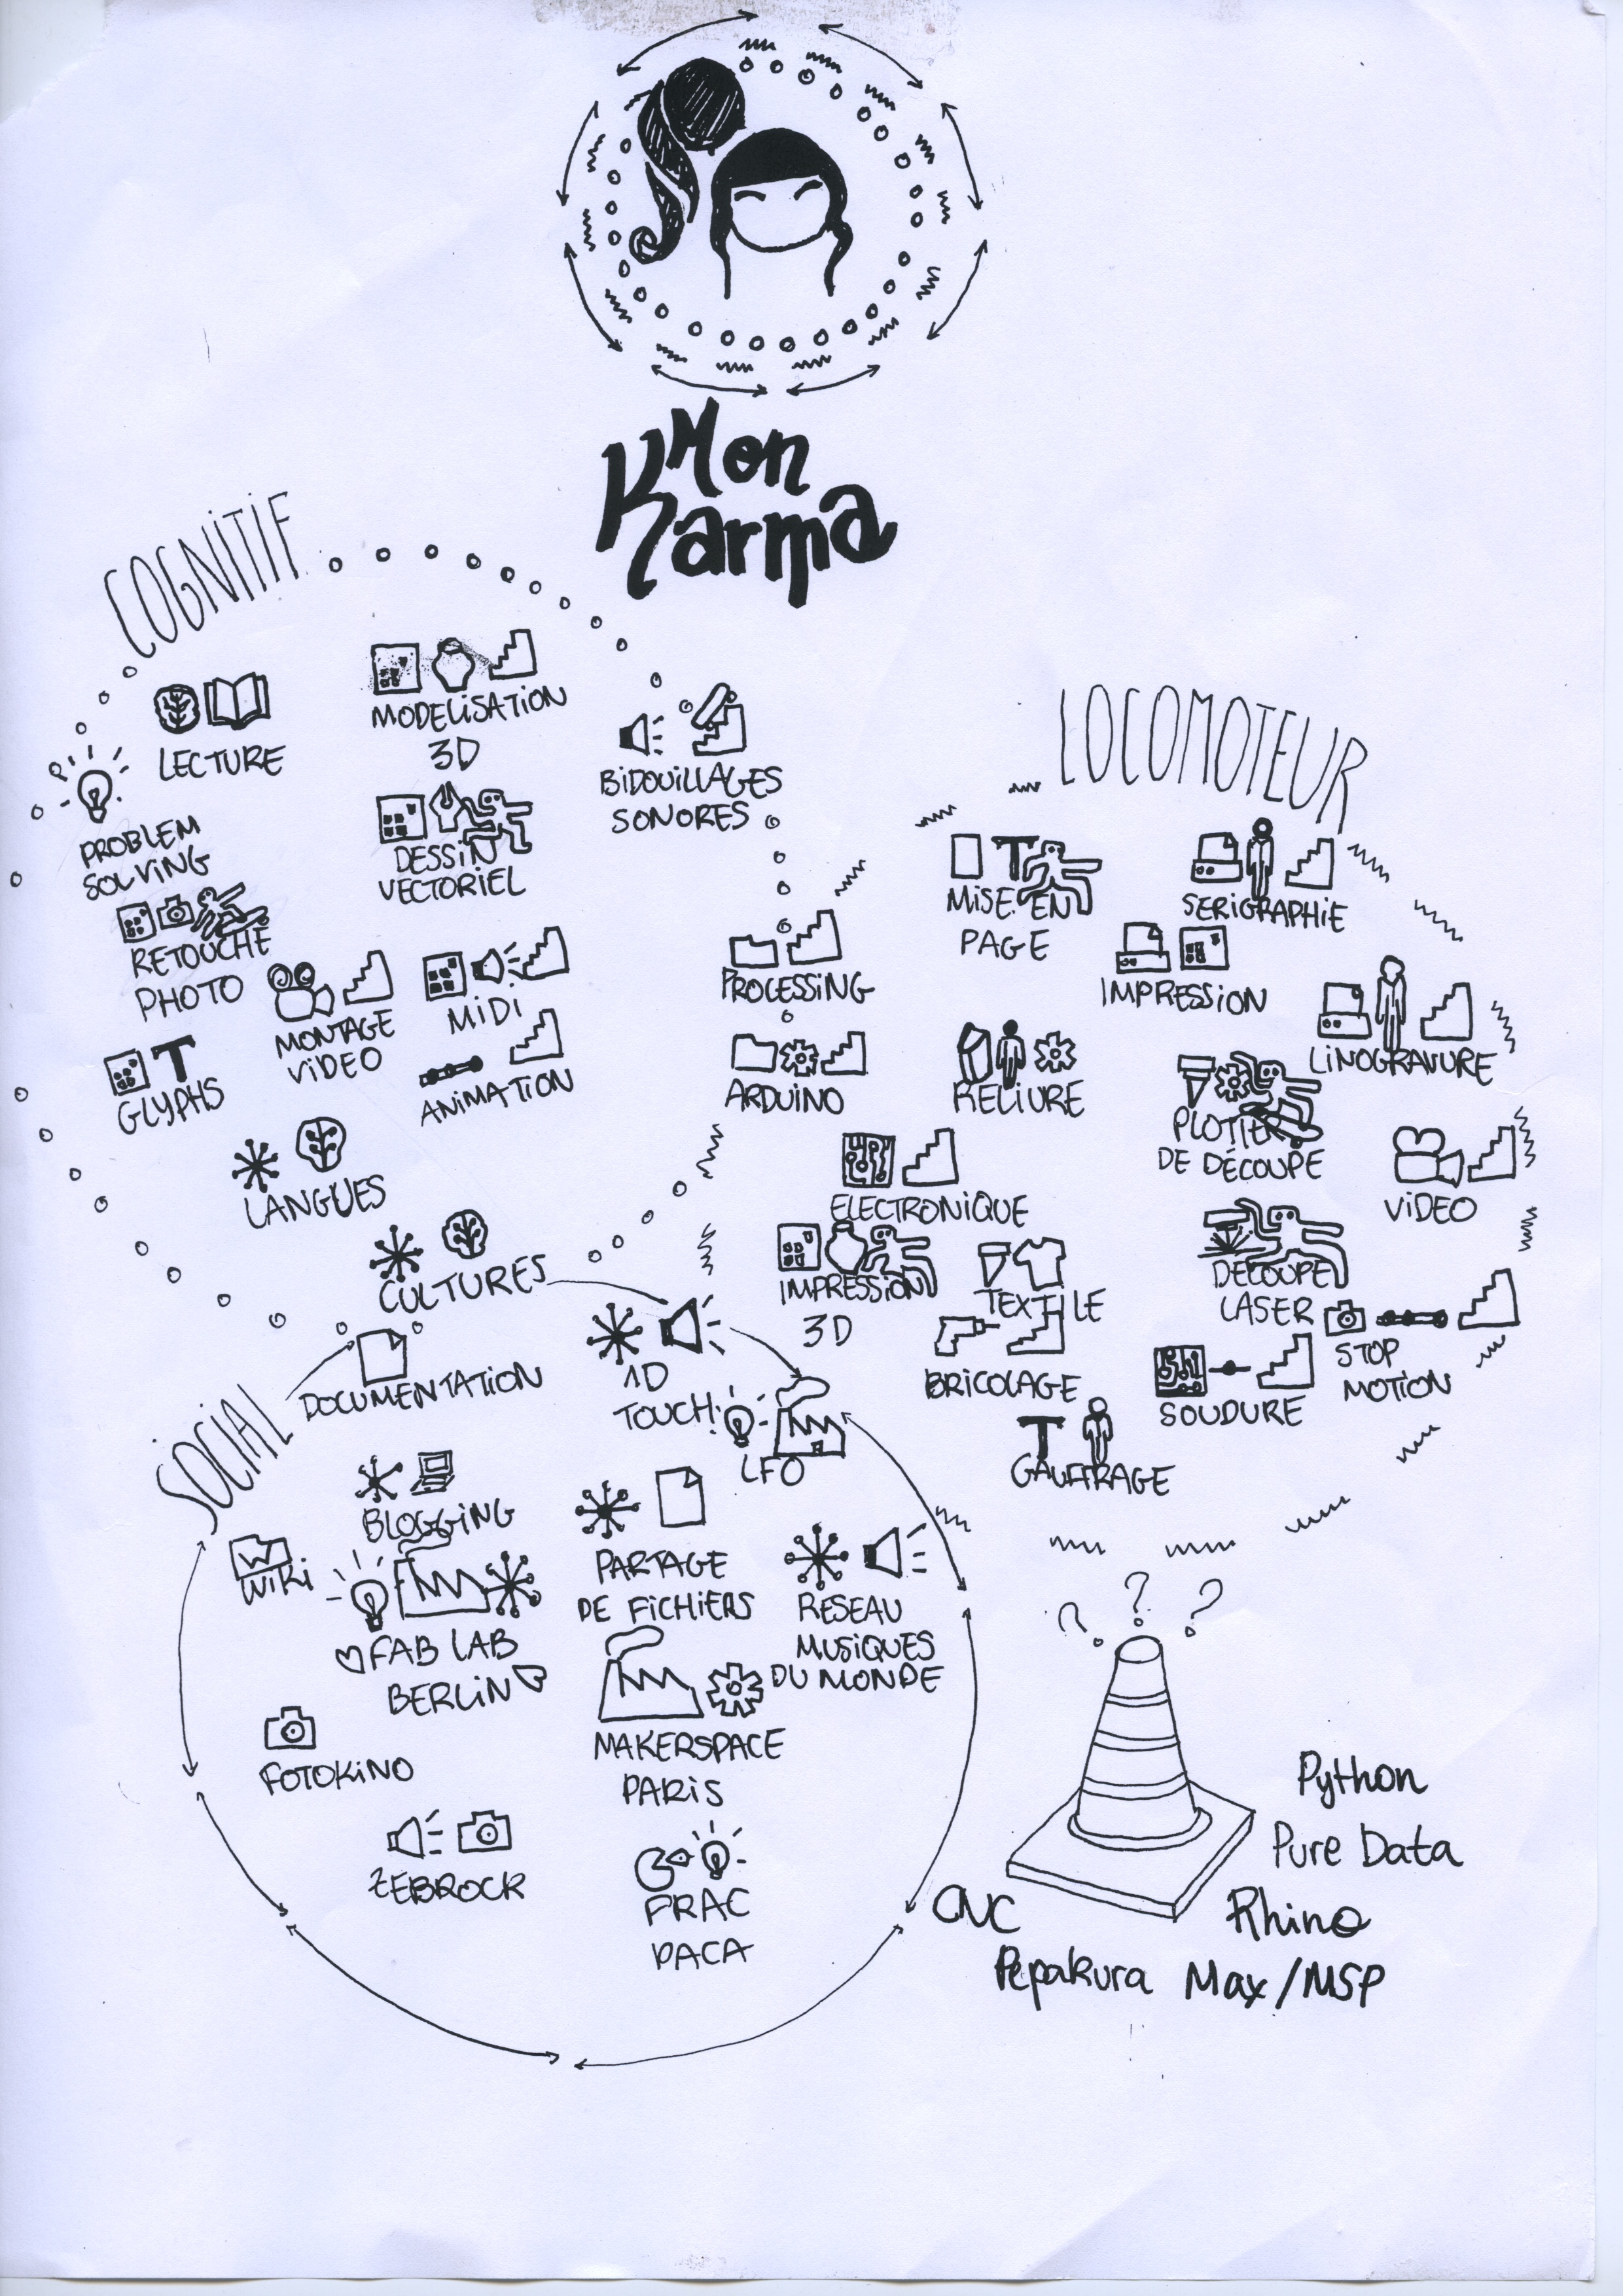 Mon
Karma
COGNITIF
LECTURE
MODELISATION
3D
BIDOUILLAGES
SONORES
PROBLEM
SOLVING
DESSIN
VECTORIEL
RETOUCHE
PHOTO
MONTAGE
VIDEO
MIDI
GLYPHS
ANIMATION
LANGUES
CULTURES
PROCESSING
ARDUINO
LOCOMOTEUR
MISE EN
PAGE
SERIGRAPHIE
IMPRESSION
LINOGRAVURE
RELIURE
PLOTTER
DE DÉCOUPE
VIDEO
ELECTRONIQUE
IMPRESSION
3D
TEXTILE
DECOUPE
LASER
BRICOLAGE
SOUDURE
STOP
MOTION
GAUFFRAGE
SOCIAL
DOCUMENTATION
1D
TOUCH
LFO
BLOGGING
W
WIKI
PARTAGE
DE FICHIERS
RESEAU
MUSIQUES
DU MONDE
FAB LAB
BERLIN
MAKERSPACE
PARIS
FOTOKINO
ZEBROCK
FRAC
PACA
? ? ?
Python
Pure Data
CNC
Rhino
Pepakura
Max/MSP